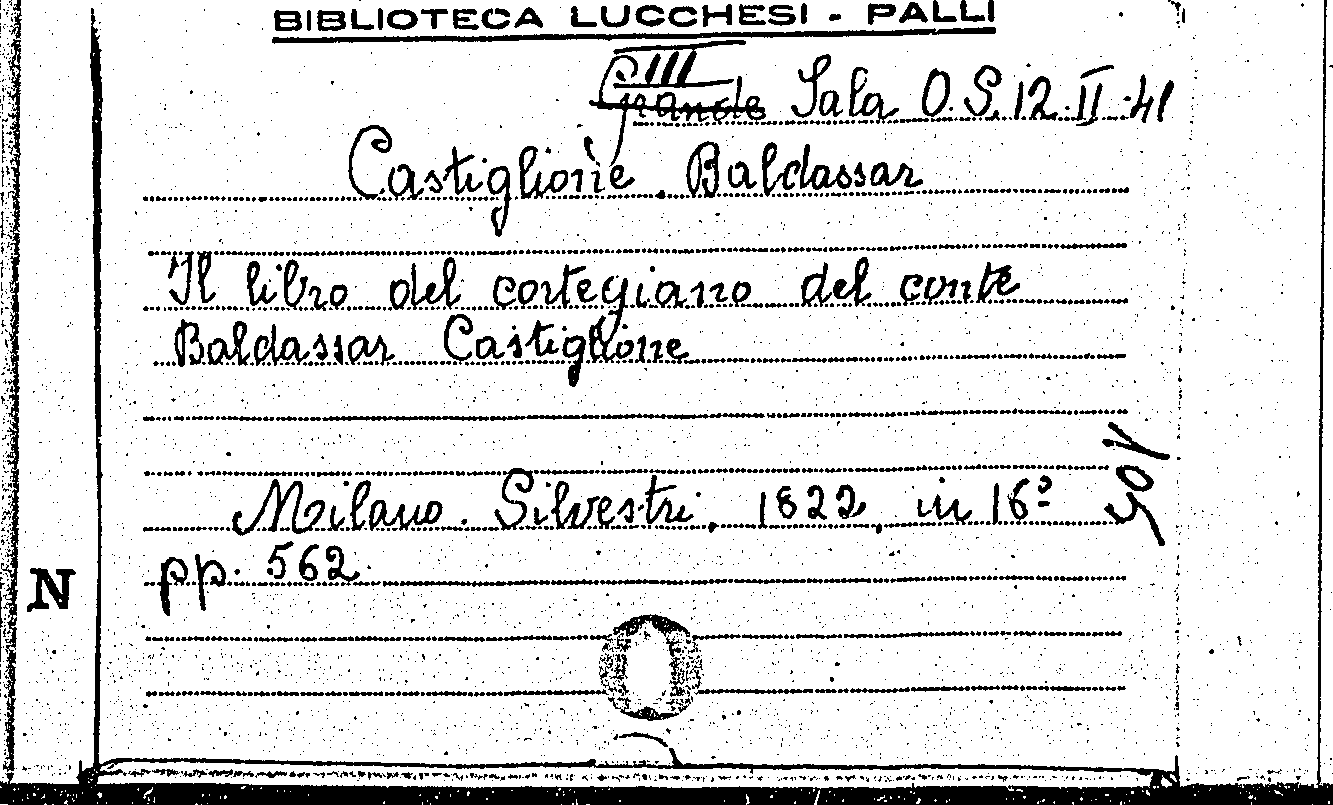 BIBLIOTECA LUCCHESI - PALLI
III
grande Sala O.S. 12.II.41
Castiglione. Baldassar
Il libro del cortegiano del conte
Baldassar Castiglione
Milano. Silvestri, 1822, in 16º
pp. 562.
N